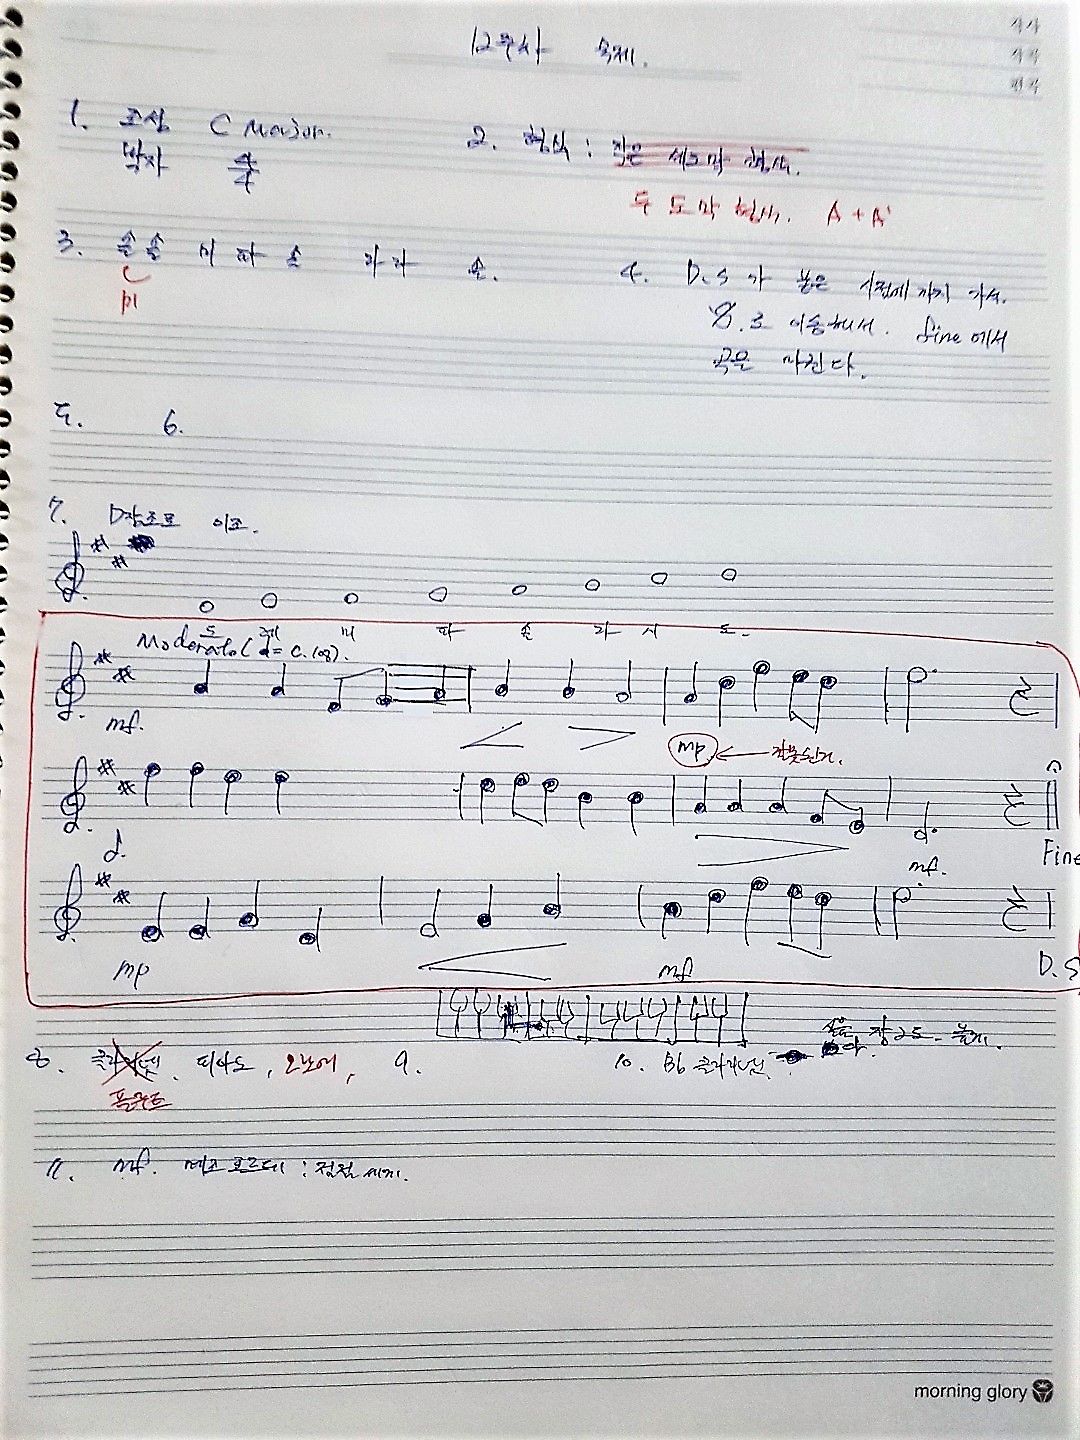 12주차 숙제.
작사
작곡
편곡
1. 조성 C Major.
박자 4/4
2. 형식 : 작은 세도막 형식.
두 도막 형식. A + A'
3. 솔솔 미 파 솔 라라 솔.
미
4. D.S가 붙은 시점에까지 가서.
𝄋.로 이동해서. fine에서
곡을 마친다.
5. 6.
7. D장조로 이조.
도 레 미 파 솔 라 시 도.
Moderato (♩= C.108).
mf.
mp. ← 잘못된거.
mf.
Fine
mp mf D.S.
8. 클라리넷, 피아노, 오보에,
플루트
9.
10. Bb 클라리넷 장2도 높게.
11. mf. 메조 포르테 : 점점 세게.
morning glory